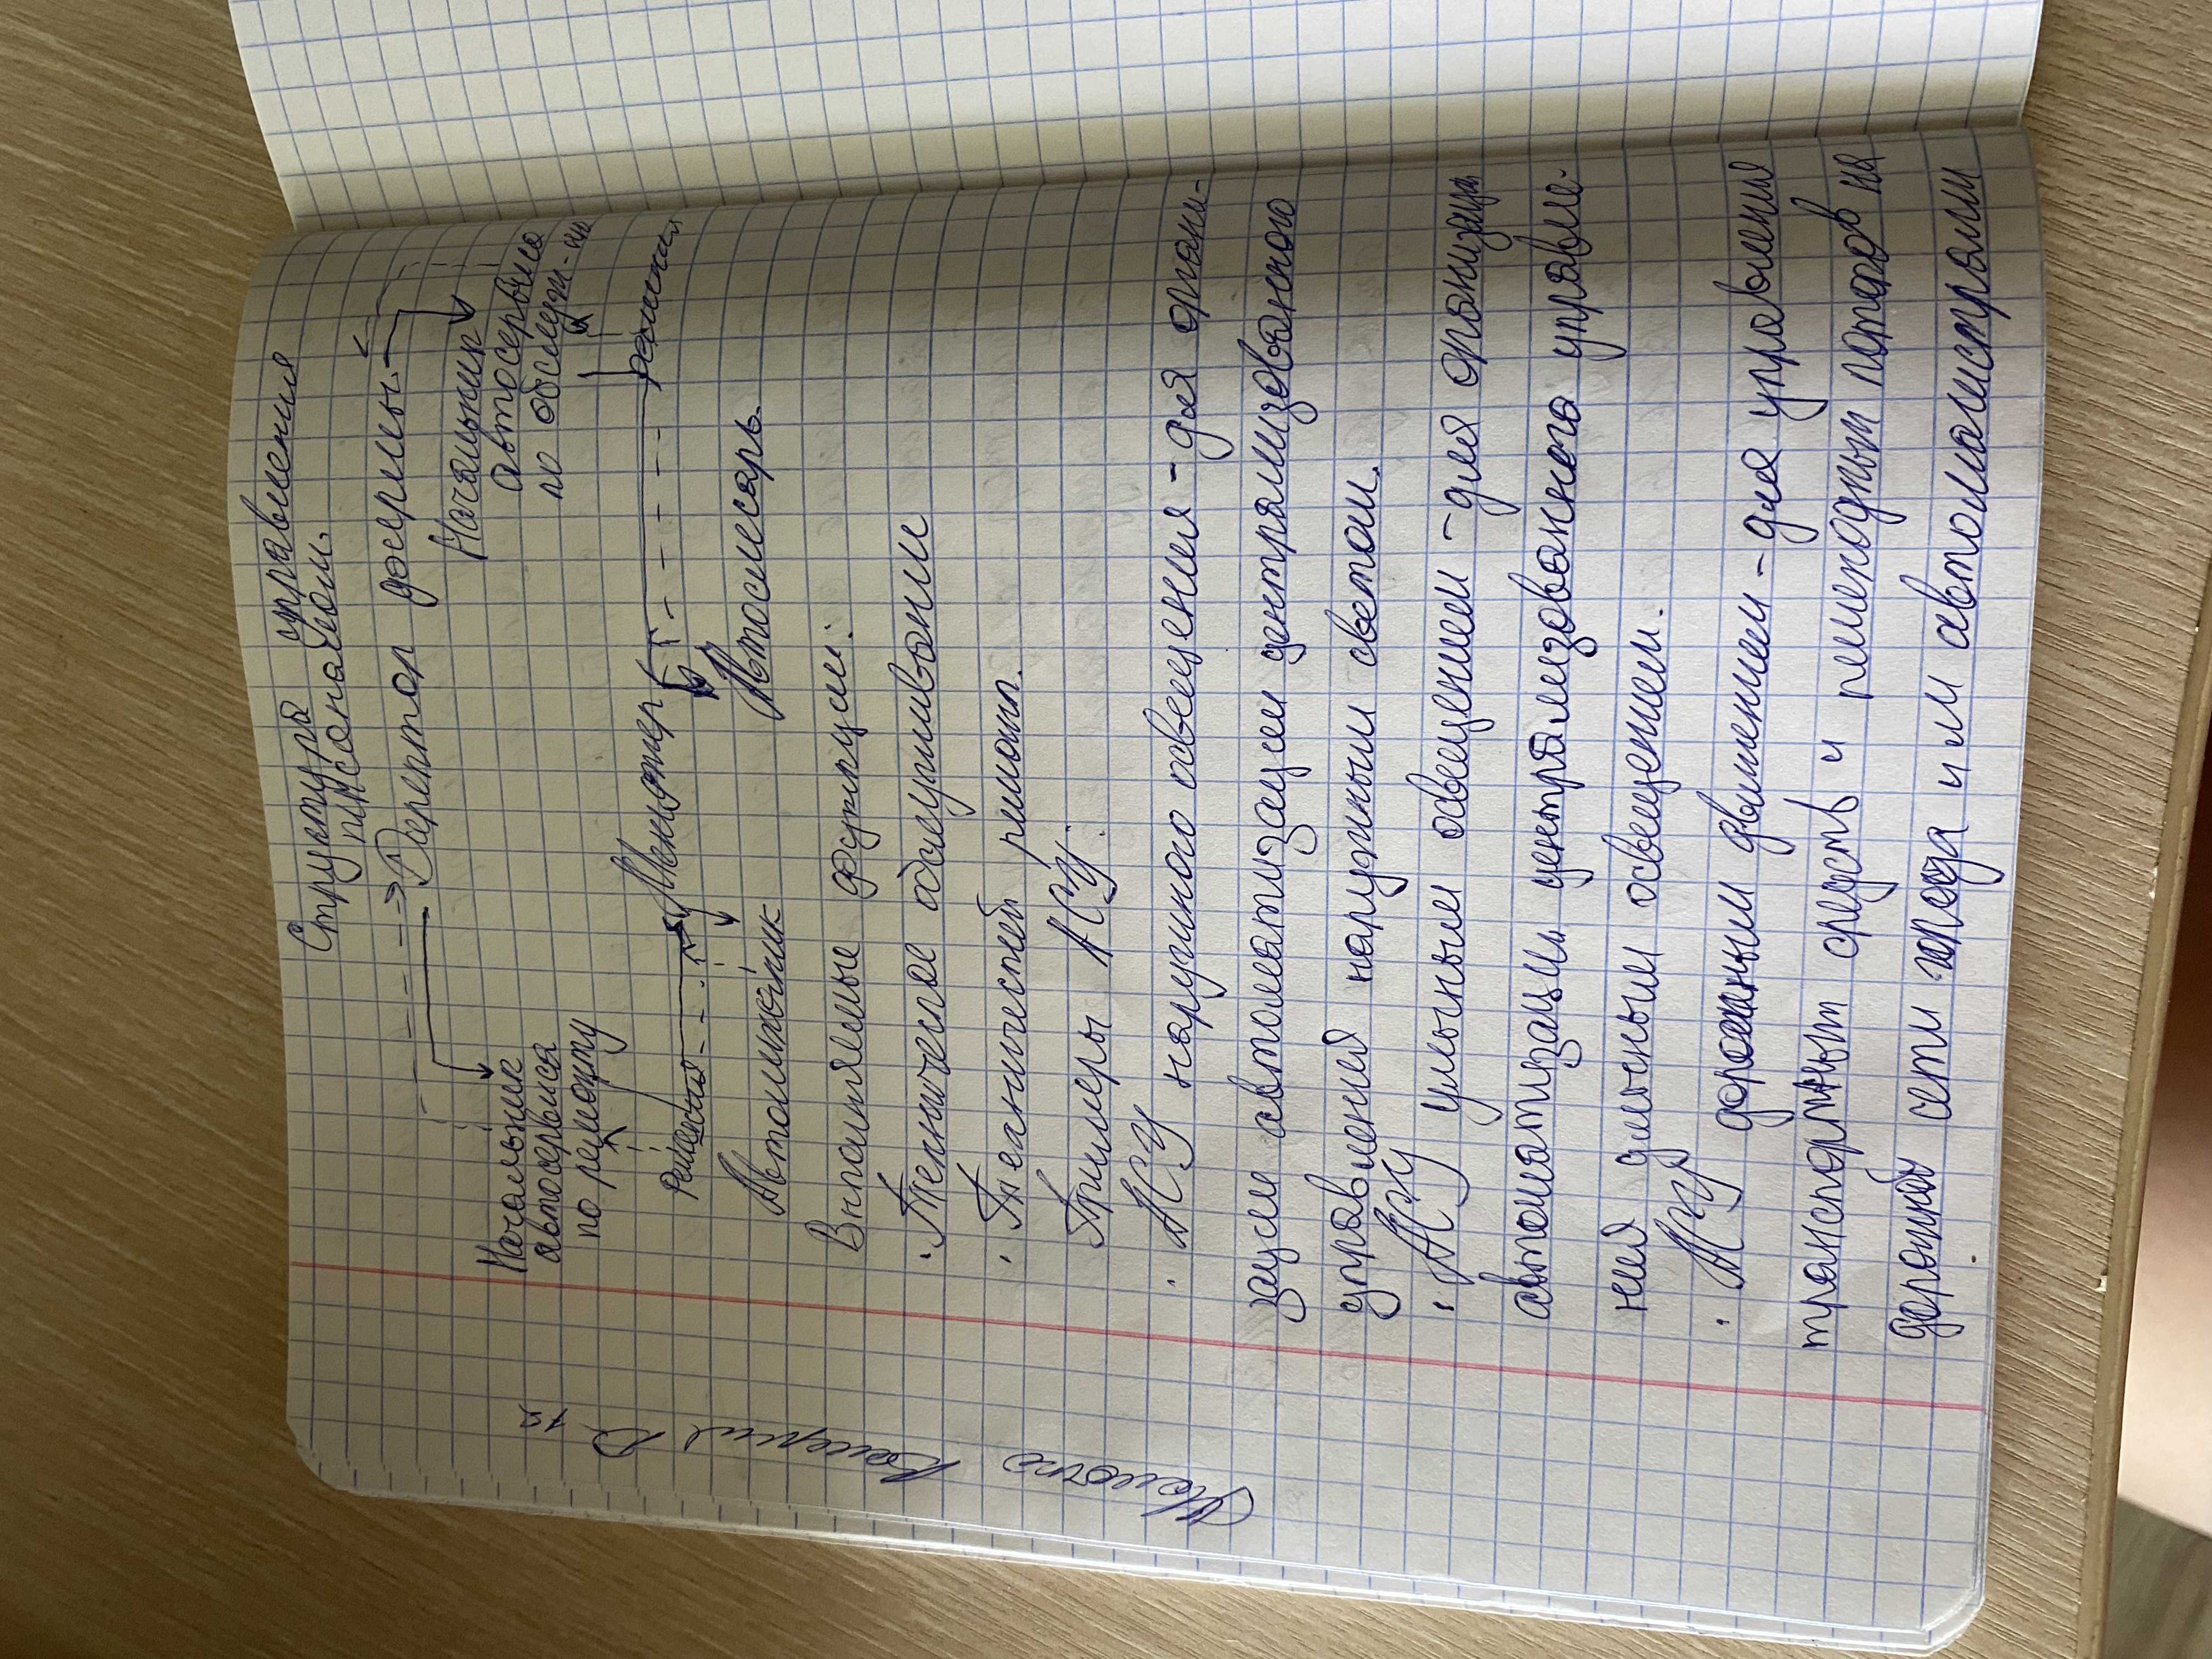 Структура управления
персоналом.
Директор фирмы
Начальник автосервиса по ремонту
Начальник автосервиса по обслуж-ию
Менеджер
решения
решения
Автомеханик
Автослесарь
Выполняемые функции:
· Техническое обслуживание
· Технический ремонт.
Примеры АСУ:
· АСУ наружного освещения - для органи-
зации автоматизации централизованного
управления наружным светом.
· АСУ уличным освещением - для организации
автоматизации централизованного управле-
ния уличным освещением.
· АСУ дорожным движением - для управления
транспортных средств и пешеходных потоков на
дорожной сети города и ли автомагистрали
.